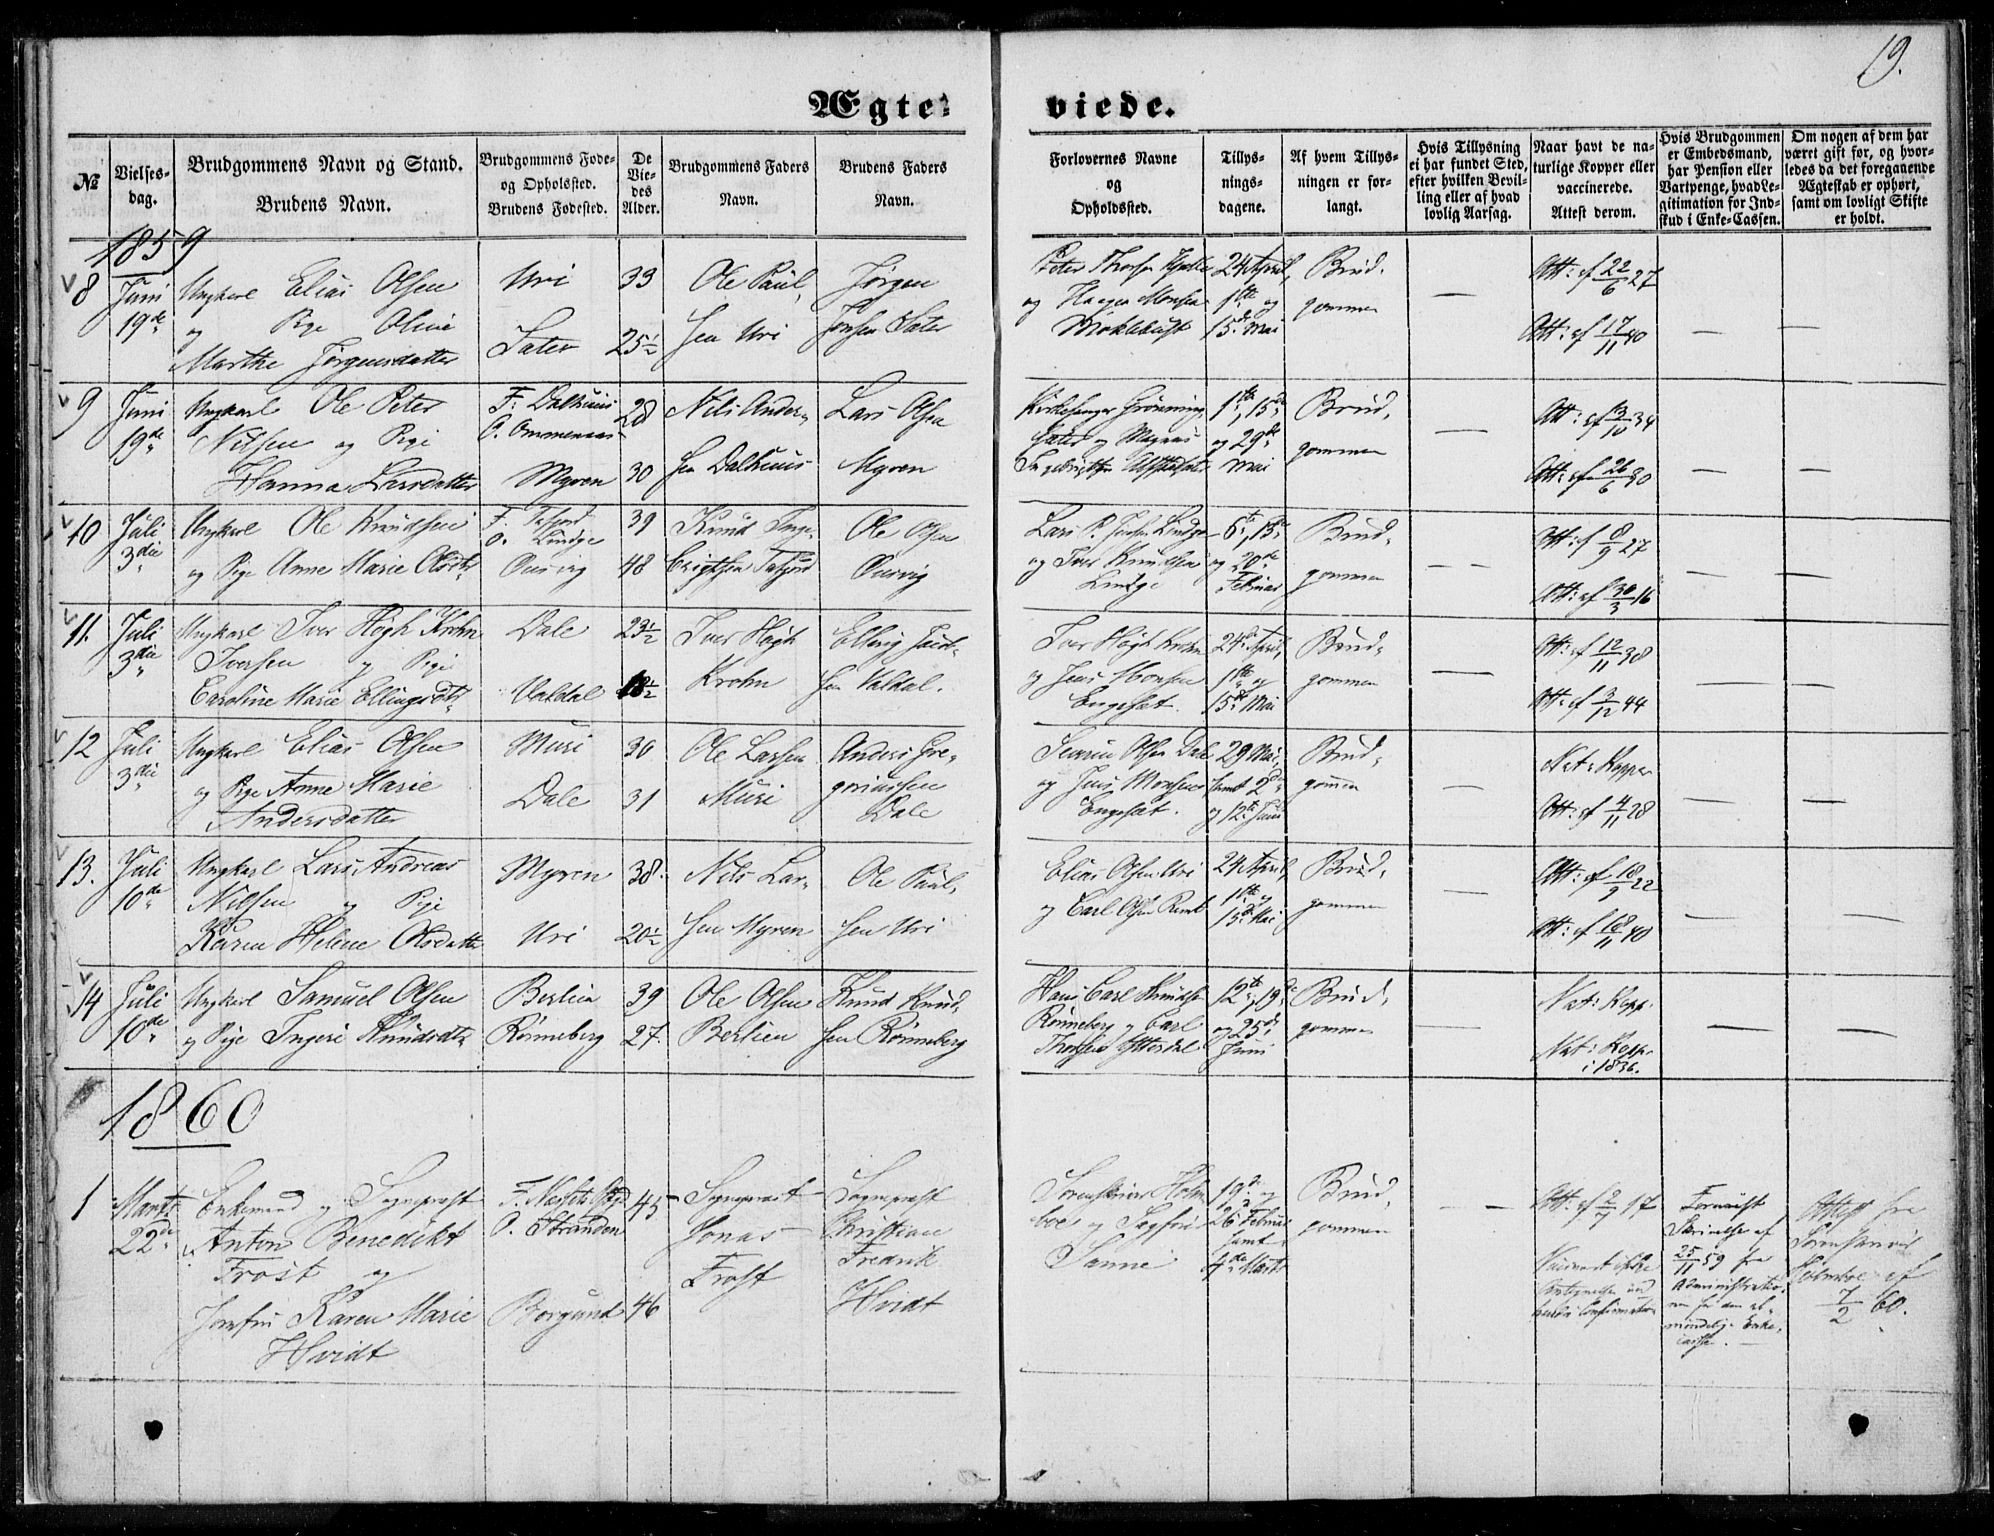 19.
Ægte-
viede.
№
Vielses-
dag.
Brudgommens Navn og Stand.
Brudens Navn.
Brudgommens Føde-
og Opholsted.
Brudens Fødested.
De
Vie-
des
Alder.
Brudgommens Faders
Navn.
Brudens Faders
Navn.
Forlovernes Navne
og
Opholdssted.
Tillys-
nings-
dagene.
Af hvem Tillys-
ningen er for-
langt.
Hvis Tillysning
ei har fundet Sted,
efter hvilken Bevil-
ling eller af hvad
lovlig Aarsag.
Naar havt de na-
turlige Kopper eller
vaccinerede.
Attest derom.
Hvis Brudgommen
er Embedsmand,
har Pension eller
Vartpenge, hvad Le-
gitimation for Ind-
skud i Enke-Cassen.
Om nogen af dem har
været gift før, og hvor-
ledes da det foregaaende
Ægteskab er ophørt,
samt om lovligt Skifte
er holdt.
1859
8
Juni
19de
Ungkarl Elias Olsen
og Pige Olivie
Marthe Jørgensdatter
Uri
Sater
33
25½
Ole Paul,
sen Uri
Jørgen
Jonsen Sater
og
24 April,
1ste og
15de Mai
Brud,
gommen
Att: af 22/6 27
Att: af 17/11 40
9
Juni
19de
Ungkarl Ole Peter
Nilsen og Pige
Hanna Larsdatter
F. Dalhuus
O. Ommenaas
Myren
28
30
Nils Ander-
sen Dalhuus
Lars Olsen
Myren
Kirkesanger Grønning-
sater og Magnus
1ste, 15de
og 29de
Mai
Brud,
gommen
Att: af 13/10 34
Att: af 26/6 30
10
Juli
3die
Ungkarl Ole Knudsen
og Pige Anne Marie Olsdtr
F. Tafjord
O. Lindge
Ousvig
39
48
Knud Inge-
brigtsen Tafjord
Ole Olsen
Ousvig
og Iver Knudsen
Lindge
6te, 13de
og 20de
Februar
Brud,
gommen
Att: af 8/9 27
Att: af 30/3 16
11.
Juli
3die
Ungkarl Iver Høgh Krohn
Iversen og Pige
Caroline Marie Ellingsdtr
Dale
Valdal
23½
18½
Iver Høgh
Krohn
Elling Knud-
sen Valdal.
Iver Høgh Krohn
og Jens Monsen
Engeset.
24de April,
1ste og
15de Mai
Brud,
gommen
Att: af 12/11 38
Att: af 3/12 44
12
Juli
3die
Ungkarl Elias Olsen
og Pige Anne Marie
Andersdatter
Muri
Dale
30
31
Ole Larsen
Muri
Anders Gre-
goriussen
Dale
Severin Olsen Dale
og Jens Monsen
Engeset.
29 Mai,
samt 2den
og 12te Juni
Brud,
gommen
Nat: Kopper
Att: af 4/11 28
13.
Juli
10de
Ungkarl Lars Andreas
Nilsen og Pige
Karen Helene Olsdatter
Myren
Uri
38.
20½
Nils Lar-
sen Myren
Ole Paul,
sen Uri
Elias Olsen Uri
og Carl Olsen
24 April,
1ste og
15de Mai
Brud,
gommen
Att: af 18/9 22
Att: af 18/11 40
14
Juli
10de
Ungkarl Samuel Olsen
og Pige Ingeri Knudsdtr
Berlien
Rønneberg
39
27.
Ole Olsen
Berlien
Knud Knud-
sen Rønneberg
Hans Carl Knudsen
Rønneberg og Carl
12te, 19de
og 25de
Juni
Brud,
gommen
Nat: Kopp.
Nat: Kopp.
i 1836.
1860
1
Marts
22de
Enkemand og Sognepræst
Anton Benedikt
Frost og
Jomfru Karen Marie
Hvidt
F. Nessets Pgd
O. Stranden
Borgund
45
46
Sognepræst
Jonas
Frost
Sognepræst
Christian
Fredrik
Hvidt
Sorenskriver Holm-
boe og
Sanne
19de og
26 Februar
samt
4de Marts
Brud,
gommen
Att: af 2/7 17
Vaccineret ifølge
Forevist
Skrivelse af
25/11 59 fra
Administratio-
nen for den al-
mindelige Enke-
casse.
Attest fra
Sorenskriver
Holmboe af
7/2 60.